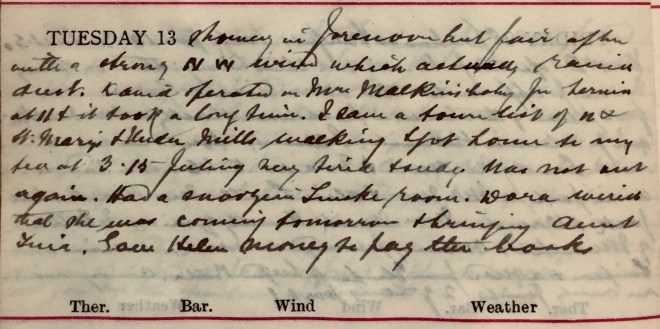 TUESDAY 13 Showery in forenoon but fair after
with a strong NW wind which actually raised
dust. David operated on Mrs Malkins baby for hernia
at 11 & it took a long time. I saw a town list of
St. Marys & Mills walking & got home to my
tea at 3.15 feeling very tired & was not out
again. Had a snooze in Smoke room. Dora wired
that she was coming tomorrow & bringing Aunt
Gave Helen money to pay the books
Ther. Bar. Wind Weather